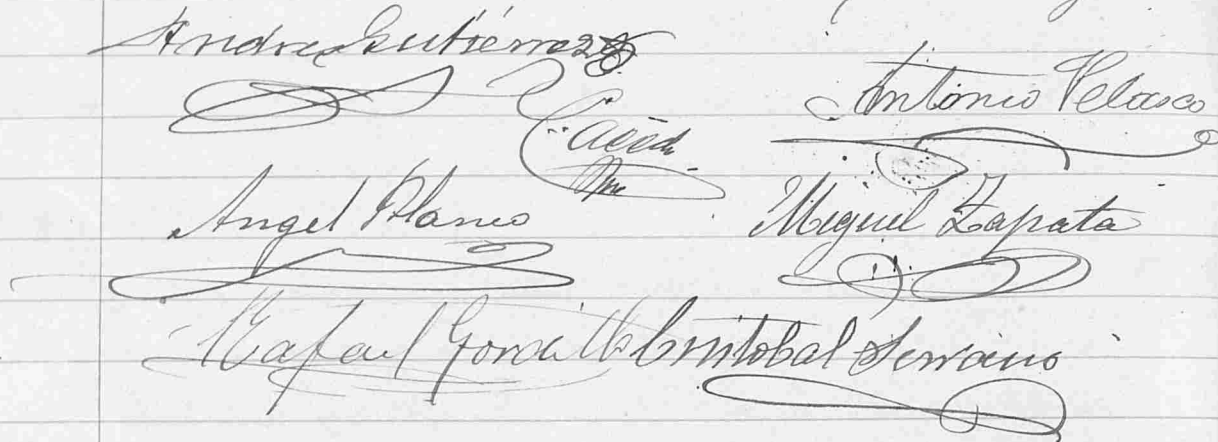 Andres Gutiérrez
Antonio Velasco
Angel Blanco
Miguel Zapata
Rafael Gordillo Cristobal Serrano